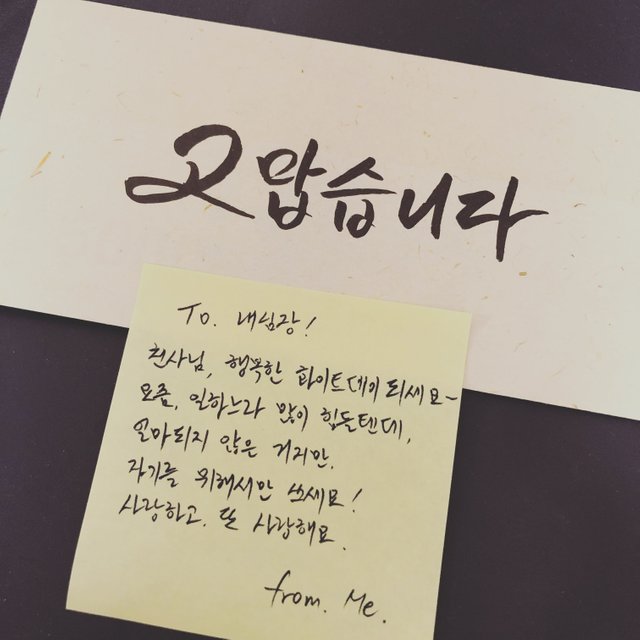 고맙습니다
To. 내심장!
천사님, 행복한 화이트데이 되세요~
요즘, 일하느라 많이 힘든텐데,
얼마되지 않은 거지만.
자기를 위해서만 쓰세요!
사랑하고. 또 사랑해요.
from. Me.